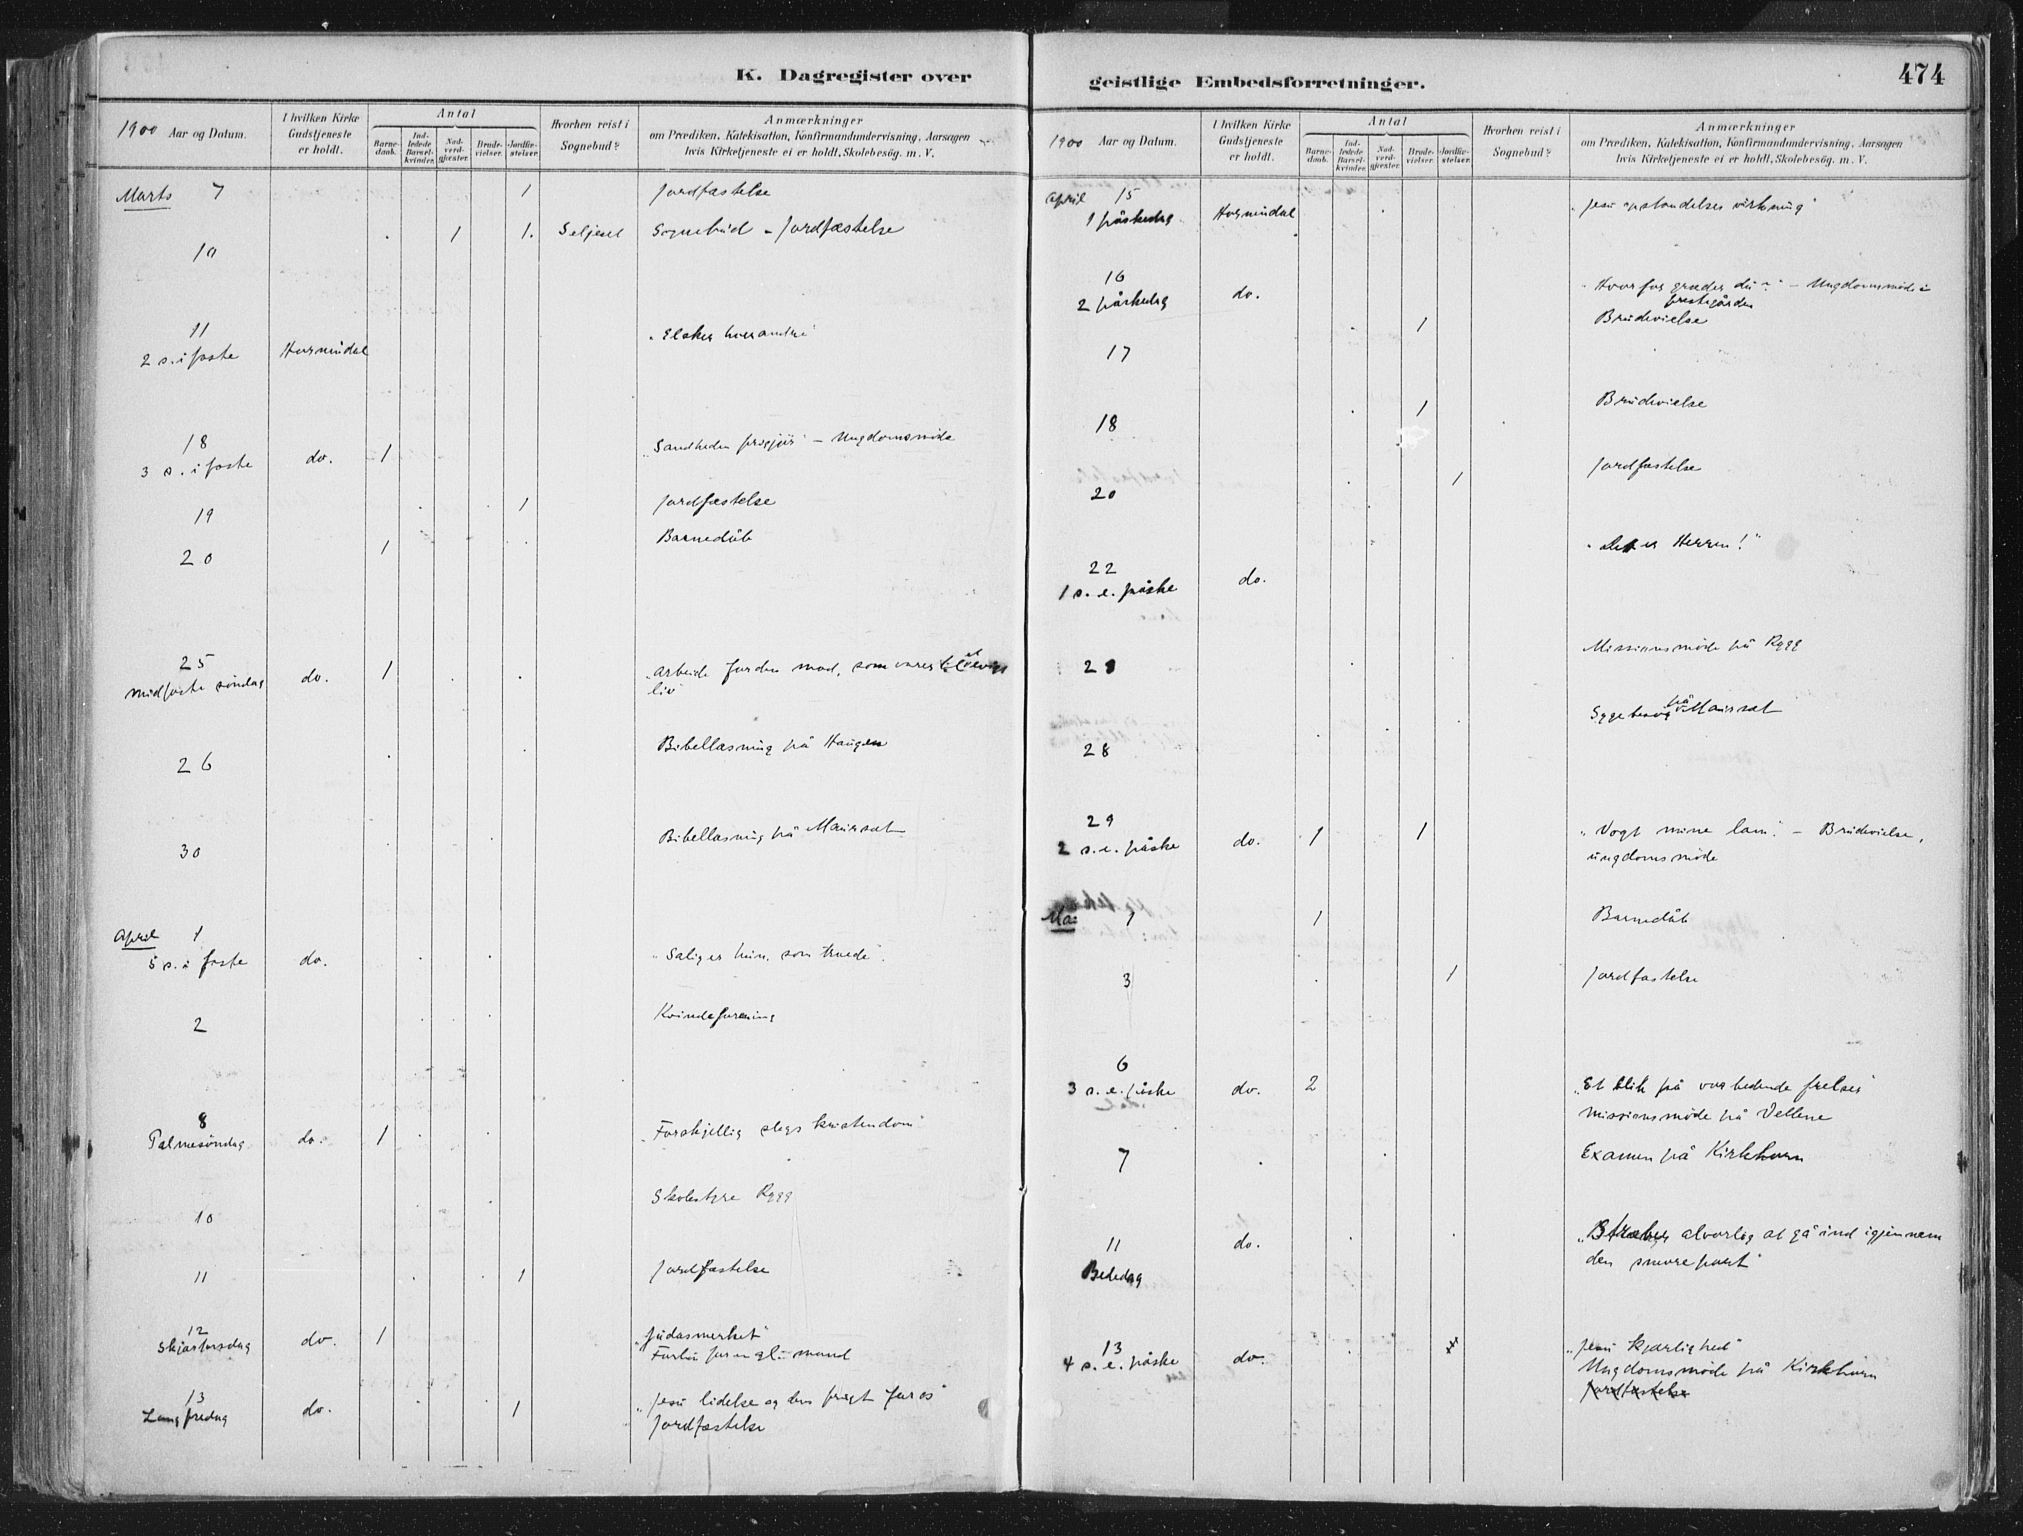 K. Dagregister over
1900 Aar og Datum.
I hvilken Kirke Gudstjeneste er holdt.
Antal
Barnedaab.
Indledede Barselkvinder.
Nadverdgjæster.
Brudevielser.
Jordfæstelser.
Hvorhen reist i Sognebud?
Anmærkninger
om Prædiken, Katekisation, Konfirmandundervisning, Aarsagen
hvis Kirketjeneste ei er holdt, Skolebesög. m. V.
Marts 7 1 Jordfæstelse
10 1 1. Seljeset Sognebud - Jordfæstelse
11
2 s. i faste Hornindal "Elsker hverandre"
18
3 s. i faste do. 1 "Sandheden frigjør" - Ungdomsmøde
19 1 Jordfæstelse
20 1 Barnedåb
25
midfaste søndag do. 1 "Arbeide for den mad, som varer til et evigt
liv"
26 Bibellæsning på Haugen
30 Bibellæsning på Maurset
April 1
5 s. i faste do. "Salig er hun, som troede".
2 Kvindeforening
8
Palmesöndag do. 1 "Forskjellig slags kristendom"
10 Skolestyre Rygg
11 1 Jordfæstelse
12
Skjærtorsdag do. 1 "Judasmerket"
Forbøn for en gl. mand
13
Langfredag do. 1 "Jesu lidelse og dens frugt for os"
Jordfæstelse
geistlige Embedsforretninger.
474
1900 Aar og Datum.
I hvilken Kirke Gudstjeneste er holdt.
Antal
Barnedaab.
Indledede Barselkvinder.
Nadverdgjæster.
Brudevielser.
Jordfæstelser.
Hvorhen reist i Sognebud?
Anmærkninger
om Prædiken, Katekisation, Konfirmandundervisning, Aarsagen
hvis Kirketjeneste ei er holdt, Skolebesög. m. V.
April 15
1 påskedag Hornindal "Jesu opstandelses virkning"
16
2 påskedag do. "Hvorfor græder du?" - Ungdomsmöde i
prestegården
17 1 Brudevielse
18 1 Brudevielse
20 1 Jordfæstelse
22
1 s. e. påske do. "Det er Herren!"
Missionsmøde på Rygg
28 Sygebesøg på Maurset
29
2 s. e. påske do. 1 1 "Vogt mine lam." - Brudevielse,
ungdomsmøde
Mai 1 1 Barnedåb
3 1 Jordfæstelse
6
3 s. e. påske do. 2 "Et blik på vor bedende frelser"
Missionsmøde på Vellene
7 Examen på Kirkhorn
11
Bededag do. "Stræber alvorlig at gå ind igjennem
den snevre port"
13
4 s. e. påske do. "Jesu kjærlighed"
Ungdomsmøde på Kirkhorn
Jordfæstelse